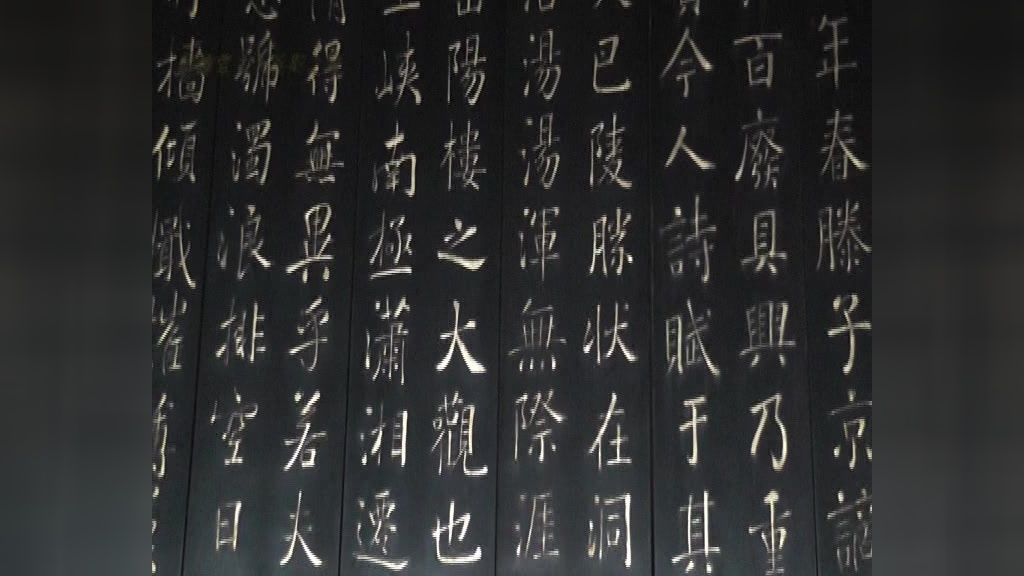 年春滕子京謫
百廢具興乃重
今人詩賦于其
巴陵勝状在洞
湯湯渾無際涯
陽樓之大觀也
峽南極瀟湘遷
得無異乎若夫
號濁浪排空日
檣傾檝摧